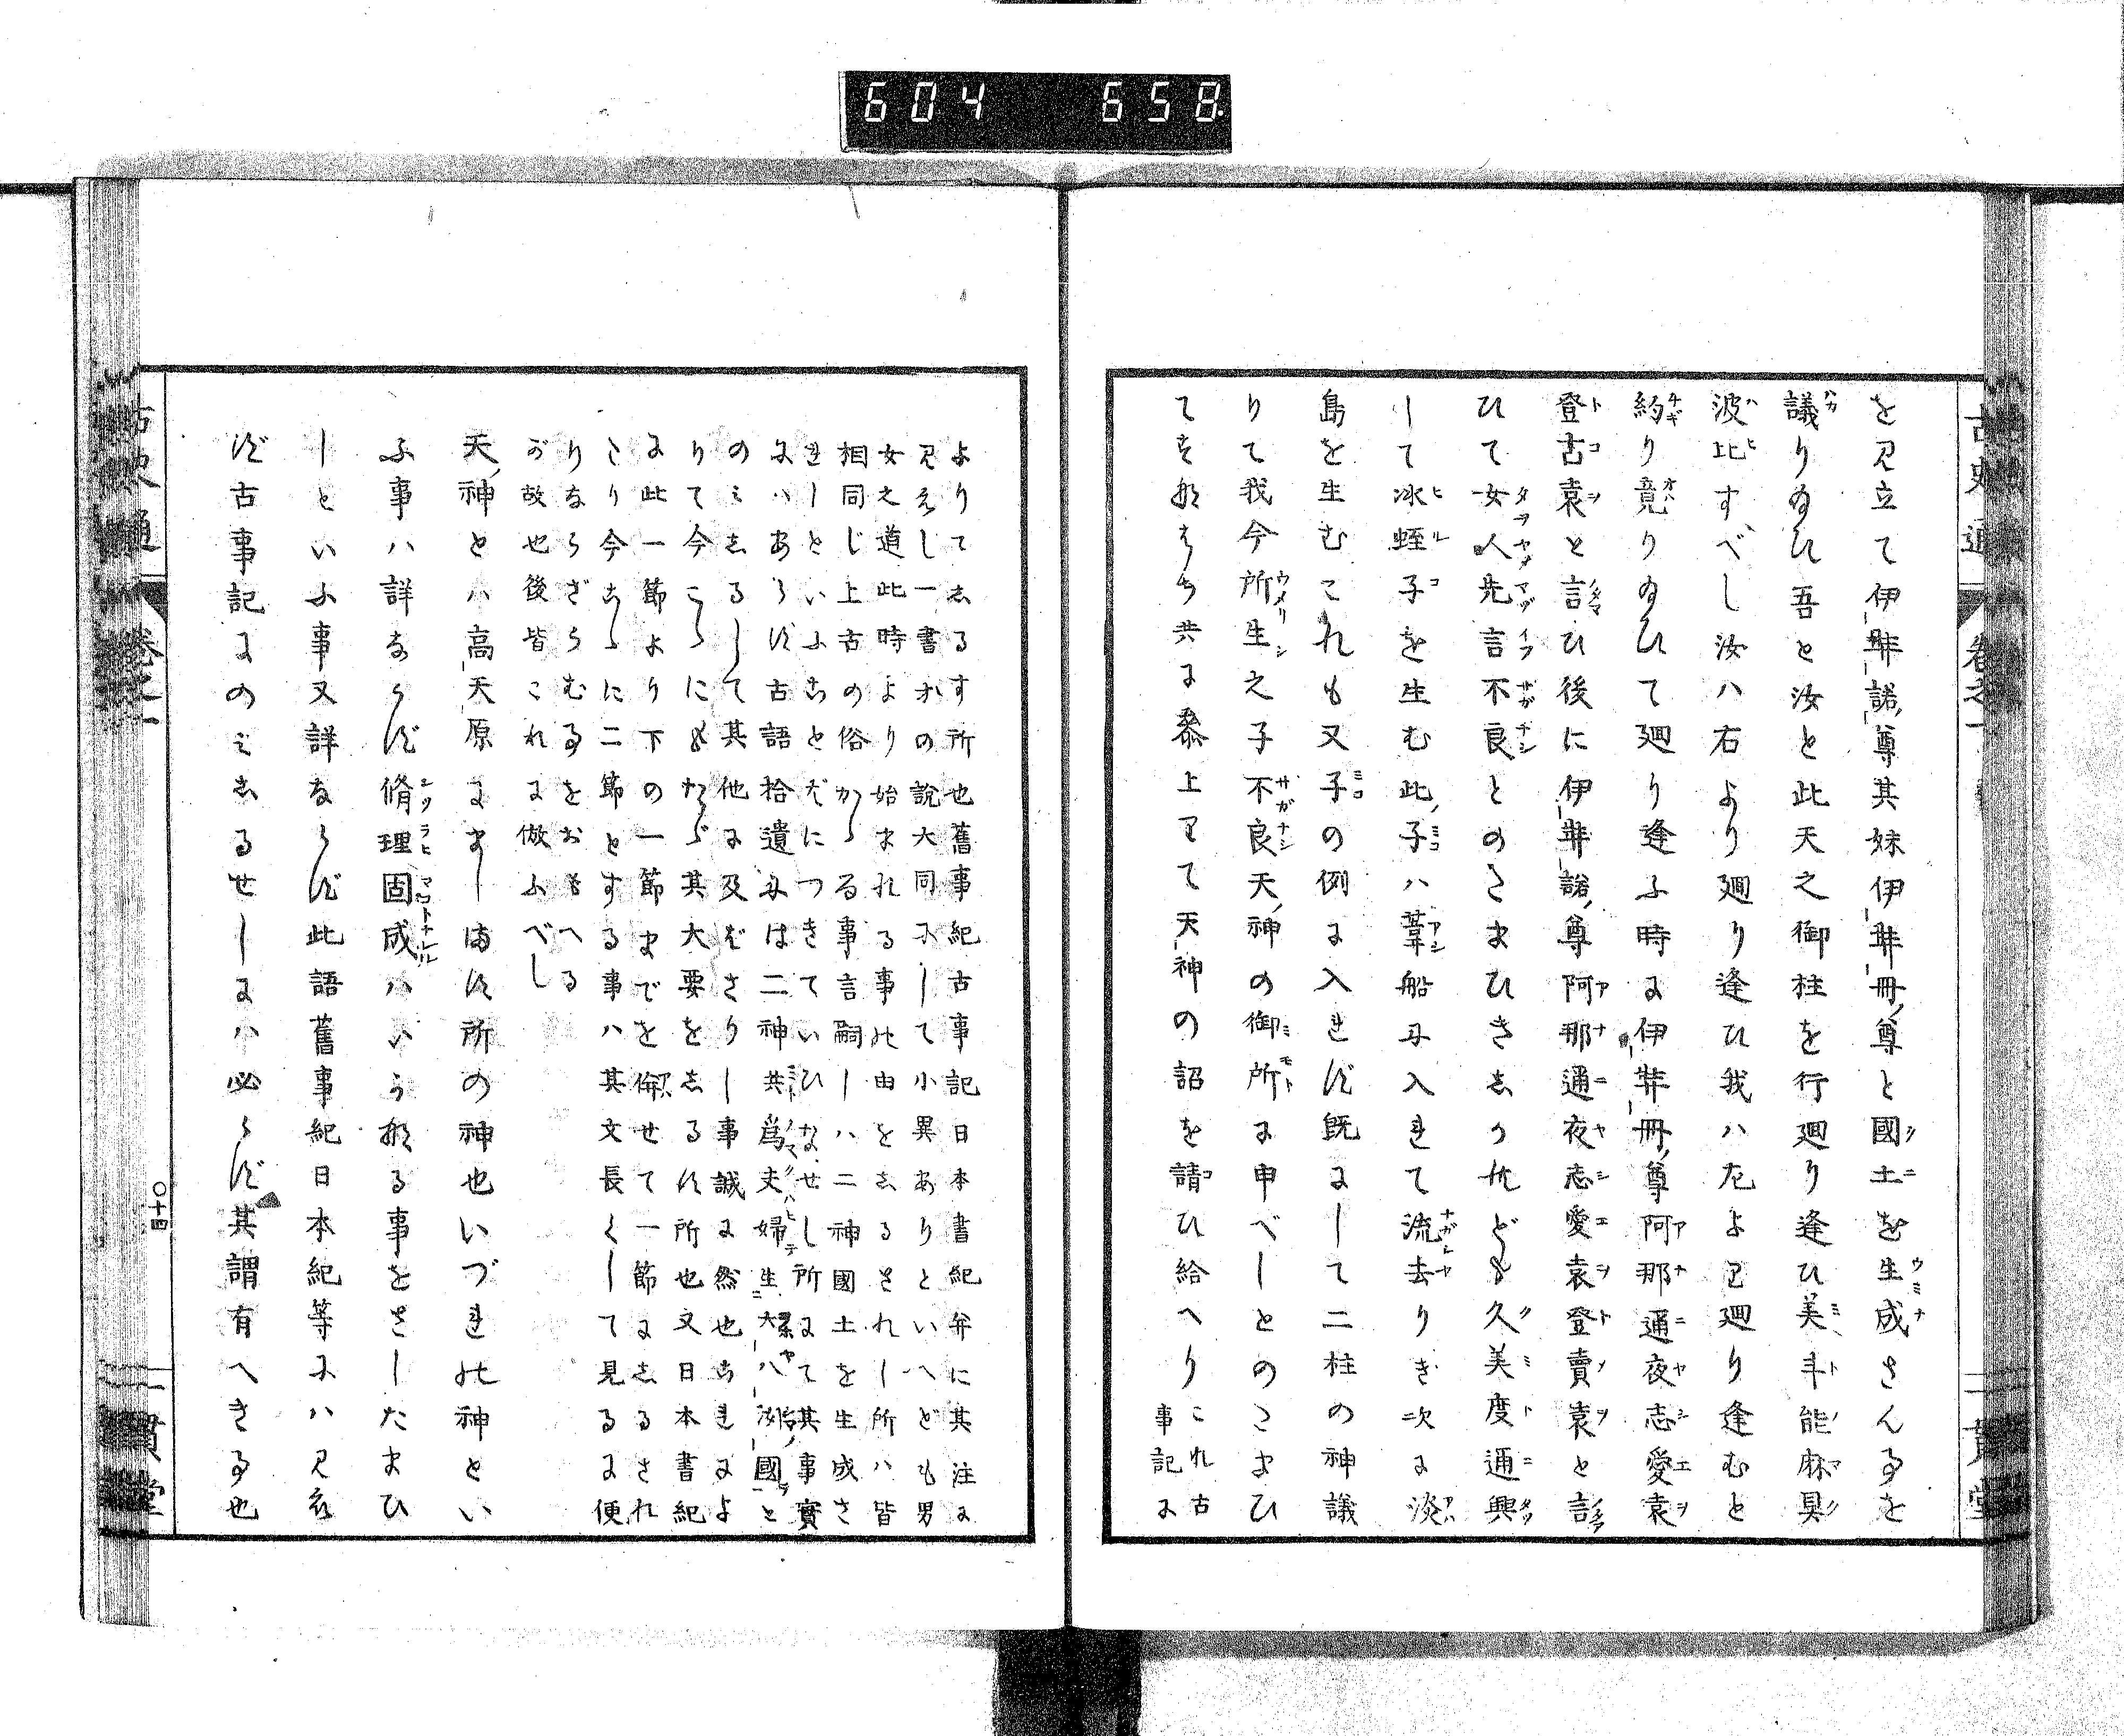 604 658
古史通 卷之一 二貫堂
を見立て伊弉諾尊其妹伊弉冊尊と國土を生成さんるを
議り給ひ吾と汝と此天之御柱を行廻り逢ひ美斗能麻具
波比すべし汝ハ右より廻り逢ひ我ハ左より廻り逢むと
約り竟り給ひて廻り逢ふ時に伊弉冊尊阿那迩夜志愛袁
登古袁と言ひ後に伊弉諾尊阿那迩夜志愛袁登賣袁と言
ひて女人先言不良とのたまひきしかれども久美度迩興
して水蛭子を生む此子ハ葦船に入れて流去りぎ次に淡
島を生むこれも又子の例に入れず既にして二柱の神議
りて我今所生之子不良天神の御所に申べしとのたまひ
てすなはち共に參上りて天神の詔を請ひ給へりこれ古
事記に
よりてしるす所也舊事紀古事記日本書紀幷に其注に
見えし一書等の說大同にして小異ありといへども男
女之道此時より始まれる事の由をしるされし所ハ皆
相同じ上古の俗かゝる事言嗣しハ二神國土を生成さ
れしといふことばにつきていひなせし所にて其事實
にハあらず古語拾遺には二神共爲夫婦生大八洲國と
のミしるして其他に及ばざりし事誠に然也これによ
りて今こゝにもたゞ其大要をしるす所也又日本書紀
に此一節より下の一節までを倂せて一節にしるされ
たり今こゝに二節とする事ハ其文長くして見るに便
りならざらむるをおもへる
が故也後皆これに倣ふべし
天神とハ高天原にまします所の神也いづれの神とい
ふ事ハ詳ならず脩理固成ハいかなる事をさしたまひ
しといふ事又詳ならず此語舊事紀日本紀等にハ見え
ず古事記にのミしるせしにハ必らず其謂有へきる也
古史通 卷之一 〇十四 二貫堂